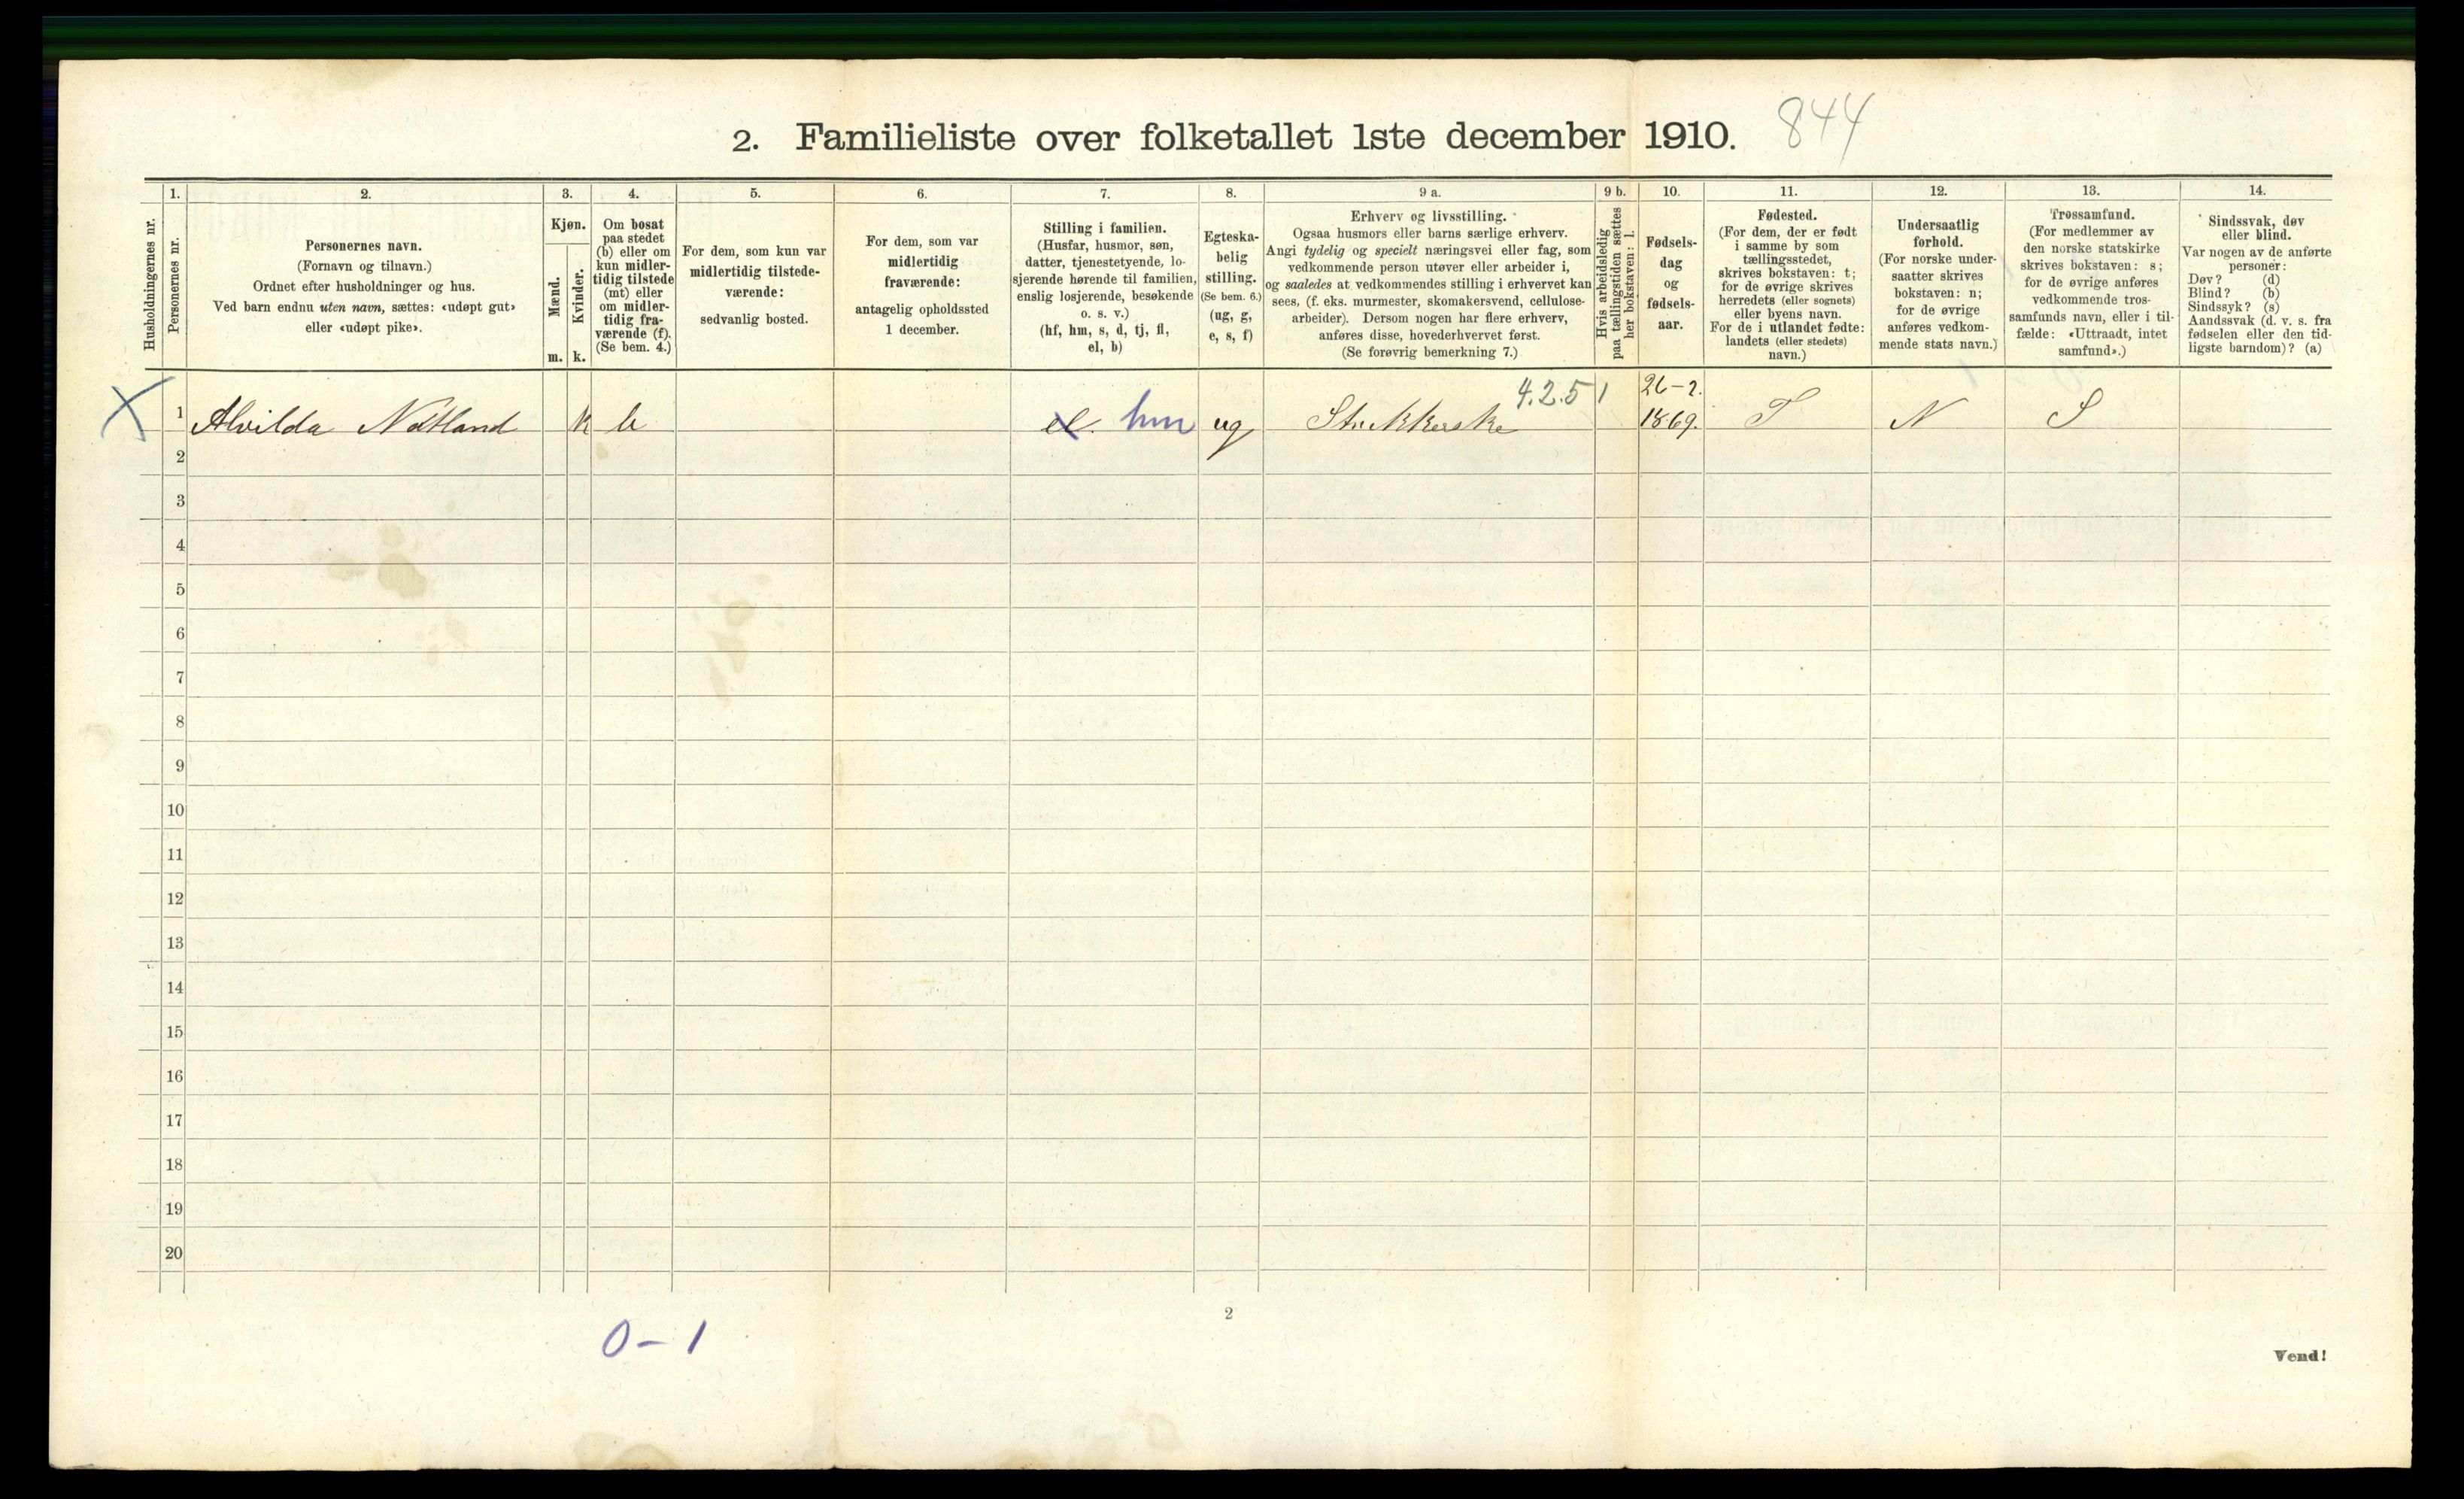 844
2. Familieliste over folketallet 1ste december 1910.
Husholdningernes nr.
1.
Personernes nr.
2.
Personernes navn.
(Fornavn og tilnavn.)
Ordnet efter husholdninger og hus.
Ved barn endnu uten navn, sættes: «udøpt gut»
eller «udøpt pike».
3.
Kjøn.
Mænd.
Kvinder.
m. k.
4.
Om bosat
paa stedet
(b) eller om
kun midler-
tidig tilstede
(mt) eller
om midler-
tidig fra-
værende (f).
(Se bem. 4.)
5.
For dem, som kun var
midlertidig tilstede-
værende:
sedvanlig bosted.
6.
For dem, som var
midlertidig
fraværende:
antagelig opholdssted
1 december.
7.
Stilling i familien.
(Husfar, husmor, søn,
datter, tjenestetyende, lo-
sjerende hørende til familien,
enslig losjerende, besøkende
o. s. v.)
(hf, hm, s, d, tj, fl,
el, b)
8.
Egteska-
belig
stilling.
(Se bem. 6.)
(ug, g,
e, s, f)
9 a.
Erhverv og livsstilling.
Ogsaa husmors eller barns særlige erhverv.
Angi tydelig og specielt næringsvei eller fag, som
vedkommende person utøver eller arbeider i,
og saaledes at vedkommendes stilling i erhvervet kan
sees, (f. eks. murmester, skomakersvend, cellulose-
arbeider). Dersom nogen har flere erhverv,
anføres disse, hovederhvervet først.
(Se forøvrig bemerkning 7.)
9 b.
Hvis arbeidsledig
paa tællingstiden sættes
her bokstaven: l.
10.
Fødsels-
dag
og
fødsels-
aar.
11.
Fødested.
(For dem, der er født
i samme by som
tællingsstedet,
skrives bokstaven: t;
for de øvrige skrives
herredets (eller sognets)
eller byens navn.
For de i utlandet fødte:
landets (eller stedets)
navn.)
12.
Undersaatlig
forhold.
(For norske under-
saatter skrives
bokstaven: n;
for de øvrige
anføres vedkom-
mende stats navn.)
13.
Trossamfund.
(For medlemmer av
den norske statskirke
skrives bokstaven: s;
for de øvrige anføres
vedkommende tros-
samfunds navn, eller i til-
fælde: «Uttraadt, intet
samfund».)
14.
Sindssvak, døv
eller blind.
Var nogen av de anførte
personer:
Døv? (d)
Blind? (b)
Sindssyk? (s)
Aandssvak (d. v. s. fra
fødselen eller den tid-
ligste barndom)? (a)
4.2.5 1 26-2.
X 1 Alvilda Natland k b el. hm ug Strikkerske 1869. T N S
2
3
4
5
6
7
8
9
10
11
12
13
14
15
16
17
18
19
20
2
0-1
Vend!